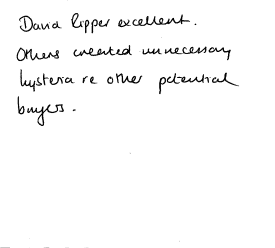 David Ripper excellent.
Others created unnecessary
hysteria re other potential
buyers.